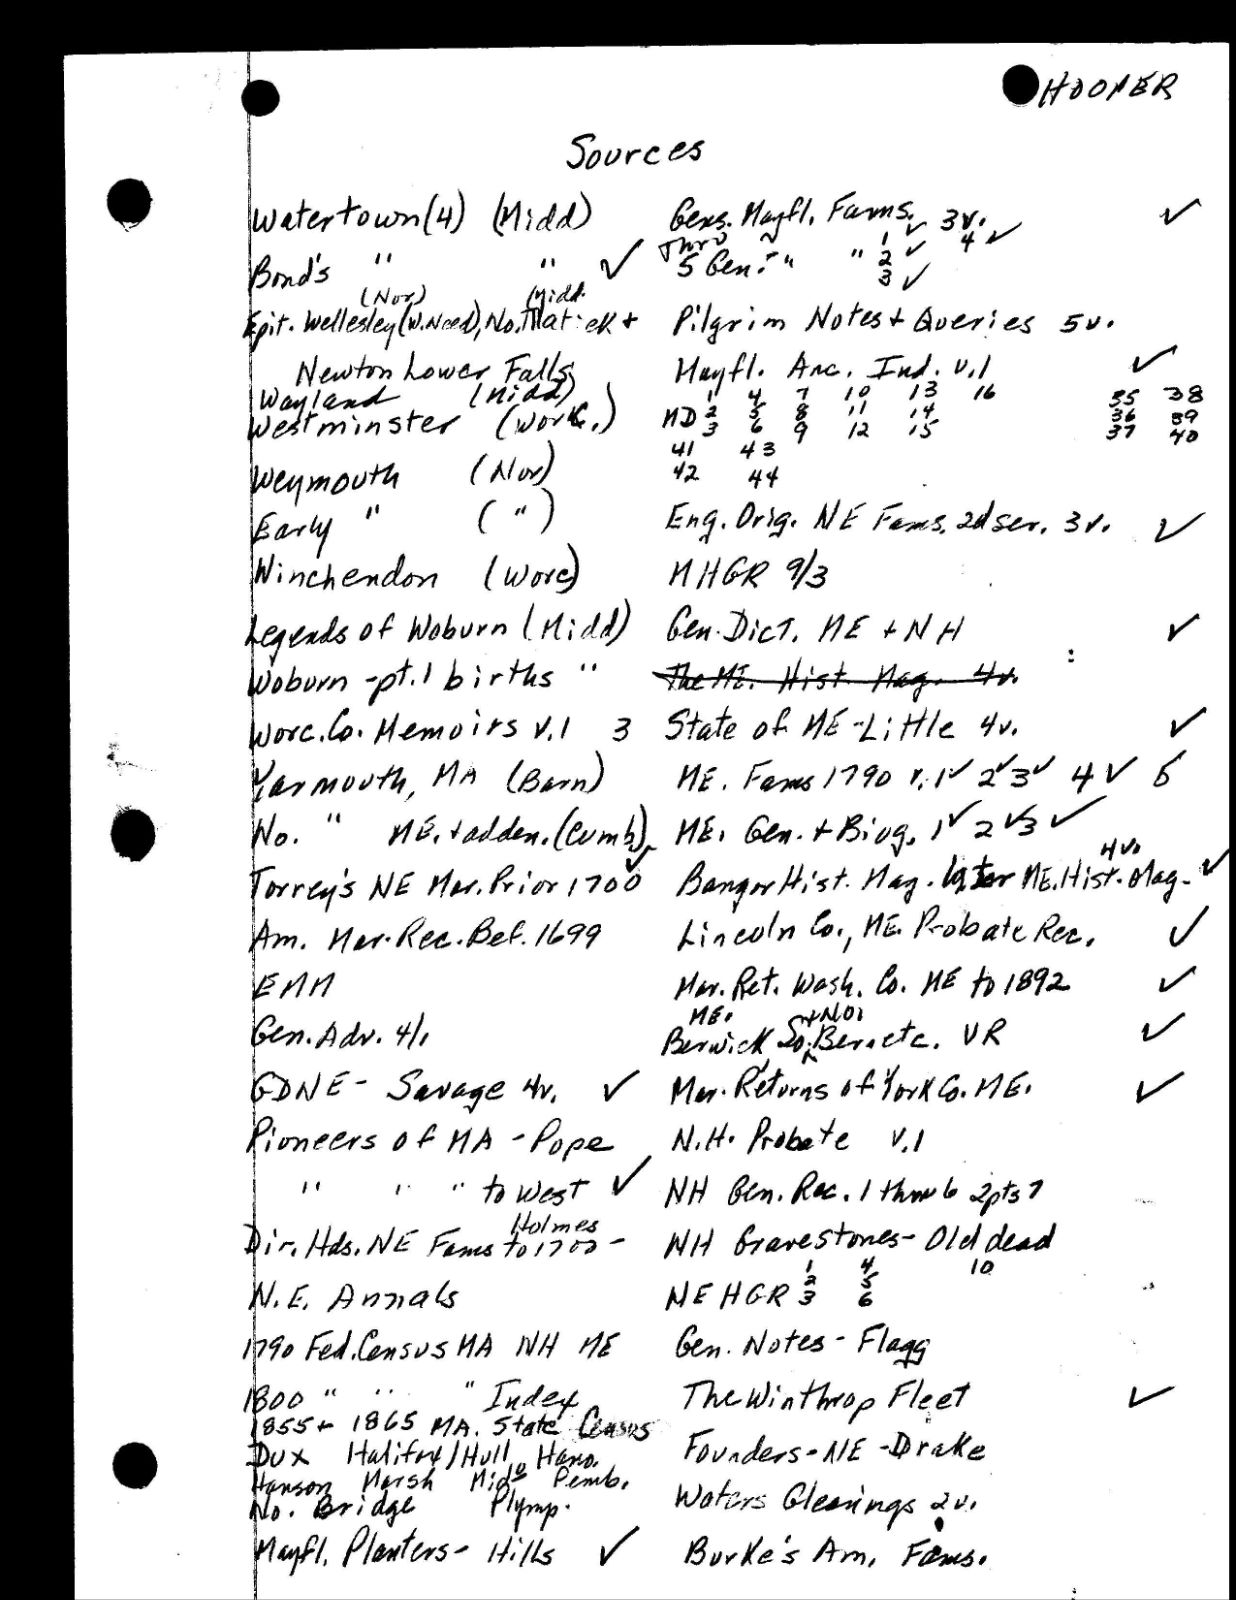 HOOPER
Sources
Watertown (4) (Midd)
Bond's " " ✓
(Nor) (Midd.
Epit. Wellesley (W. Need), No. Natick +
Newton Lower Falls
Wayland (Midd)
Westminster (Worc.)
Weymouth (Nor)
Early " ( " )
Winchendon (Worc)
Legends of Woburn (Midd)
Woburn - pt. 1 births "
Worc. Co. Memoirs v. 1 3
Yarmouth, MA (Barn)
No. " ME. + adden. (Cumb)
Torrey's NE Mar. Prior 1700 ✓
Am. Mar. Rec. Bef. 1699
EMM
Gen. Adv. 4/1
GDNE - Savage 4v. ✓
Pioneers of MA - Pope
" " " to West ✓
Holmes
Dir. Hds. NE Fams to 1700 -
N.E. Annals
1790 Fed. Census MA NH ME
1800 " " " Index
1855 + 1865 MA. State Census
Dux Halifax / Hull Hano.
Hanson Marsh Mido Pemb.
No. Bridge Plymp.
Mayfl. Planters - Hills ✓
Gens. Mayfl. Fams. 3v. ✓
Thru 1 ✓ 4 ✓
5 Gen. - " " 2 ✓
3 ✓
Pilgrim Notes + Queries 5v.
Mayfl. Anc. Ind. v. 1 ✓
1 4 7 10 13 16 35 38
MD 2 5 8 11 14 36 39
3 6 9 12 15 37 40
41 43
42 44
Eng. Orig. NE Fams. 2d ser. 3v. ✓
MHGR 9/3
Gen. Dict. ME + NH ✓
The ME. Hist. Mag. 4v.
State of ME - Little 4v. ✓
ME. Fams 1790 v. 1 ✓ 2 ✓ 3 ✓ 4 ✓ 5
ME. Gen. + Biog. 1 ✓ 2 ✓ 3 ✓
4v.
Bangor Hist. Mag. later ME. Hist. Mag. ✓
Lincoln Co., ME. Probate Rec. ✓
Mar. Ret. Wash. Co. ME to 1892 ✓
ME. + No.
Berwick So. Ber. etc. VR ✓
Mar. Returns of York Co. ME. ✓
N.H. Probate v. 1
NH Gen. Rec. 1 thru 6 2pts 7
NH Gravestones - Old dead
1 4 10
NEHGR 2 5
3 6
Gen. Notes - Flagg
The Winthrop Fleet ✓
Founders - NE - Drake
Waters Gleanings 2v.
Burke's Am. Fams.